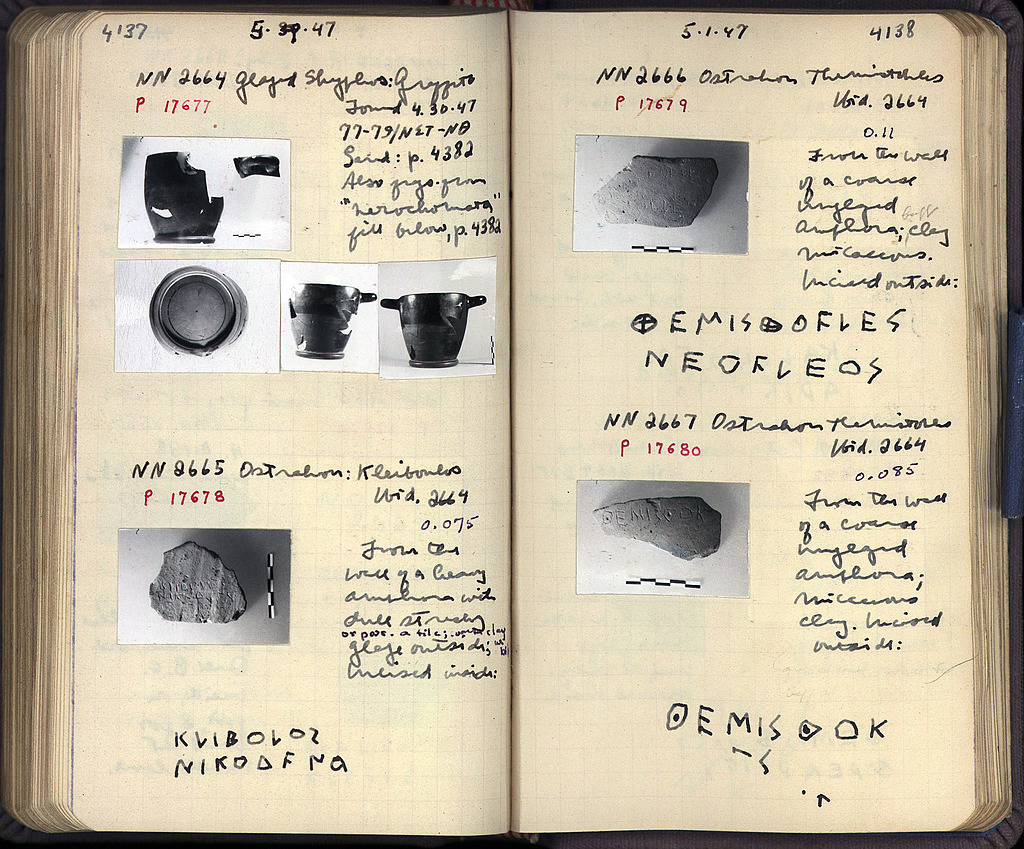 4137
5.1.47
NN 2664 Glazed Skyphos: Graffito
P 17677
Found 4.30.47
77-79/ΝΣΤ-ΝΘ
Sand: p. 4382
Also frgs. from
fill below, p. 4382
NN 2665 Ostrakon: Kleiboulos
P 17678
Ibid. 2664
0.075
From the
wall of a heavy
amphora with
dull streaky
glaze outside;
Incised inside:
KLIBOLOS
NIKODEMO
5.1.47
4138
NN 2666 Ostrakon Themistokles
P 17679
Ibid. 2664
0.11
From the wall
of a coarse
unglazed
buff
amphora; clay
micaceous.
Incised outside:
ΘEMISΘOFLES
NEOFLEOS
NN 2667 Ostrakon Themistokles
P 17680
Ibid. 2664
0.085
From the wall
of a coarse
unglazed
amphora;
micaceous
clay. Incised
outside:
ΘEMISΘOK
S